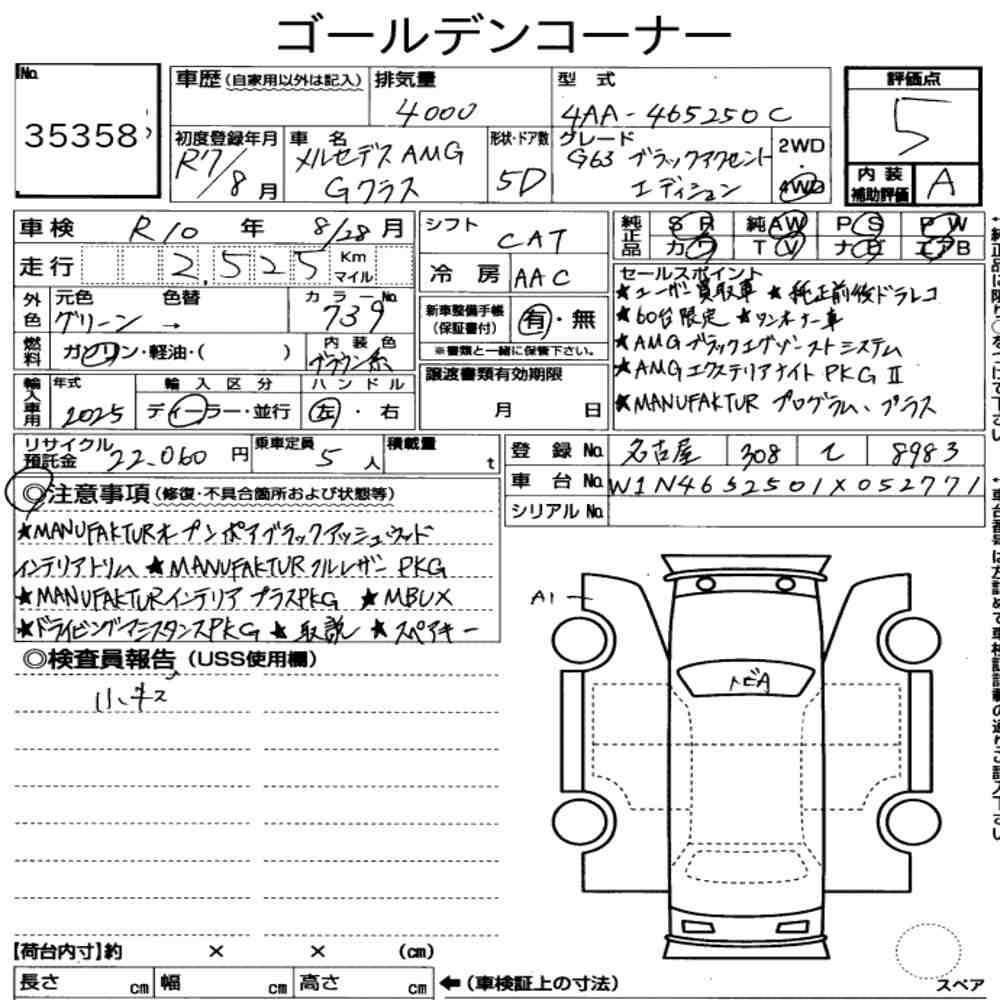 ゴールデンコーナー
No. 35358
車歴(自家用以外は記入) 排気量 4000 型式 4AA-465250C
評価点 5
初度登録年月 R7/8月 車名 メルセデスAMG Gクラス 形状・ドア数 5D グレード G63 ブラックアクセントエディション 2WD・4WD
内装補助評価 A
車検 R10年 8/28月 シフト CAT
純正品 SR 純AW PS PW
カワ TV ナビ エアB
走行 2,525 Km マイル 冷房 AAC
外色 元色 色替 カラーNo.
グリーン → 739
新車整備手帳(保証書付) 有・無
※書類と一緒に保管下さい。
燃料 ガソリン・軽油・( ) 内装色 ブラウン系
セールスポイント
★ユーザー買取車 ★純正前後ドラレコ
★60台限定 ★ワンオーナー車
★AMGブラックエグゾーストシステム
★AMGエクステリアナイトPKGⅡ
★MANUFAKTUR プログラム、プラス
輸入車用 年式 2025 輸入区分 ディーラー・並行 ハンドル 左・右
譲渡書類有効期限 月 日
リサイクル預託金 22.060円 乗車定員 5人 積載量 t
登録No. 名古屋 308 て 8983
車台No. W1N4652501X052771
シリアルNo.
◎注意事項(修復・不具合箇所および状態等)
★MANUFAKTURオープンポアブラックアッシュウッド
インテリアトリム ★MANUFAKTURフルレザーPKG
★MANUFAKTURインテリアプラスPKG ★MBUX
★ドライビングアシスタンスPKG ★取説 ★スペアキー
◎検査員報告(USS使用欄)
小キズ
A1
トビA
【荷台内寸】約 × × (cm)
長さ cm 幅 cm 高さ cm ←(車検証上の寸法)
スペア